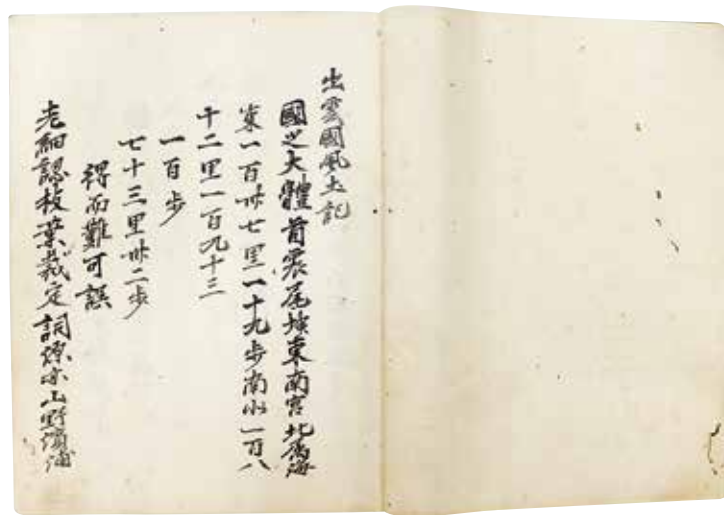 出雲國風土記
國之大體首震尾坤東南宮北属海
東一百卅七里一十九歩南北一百八
十二里一百九十三
一百歩
七十三里卅二歩
得而難可誤
老細認枝葉裁定詞源亦山野濱浦